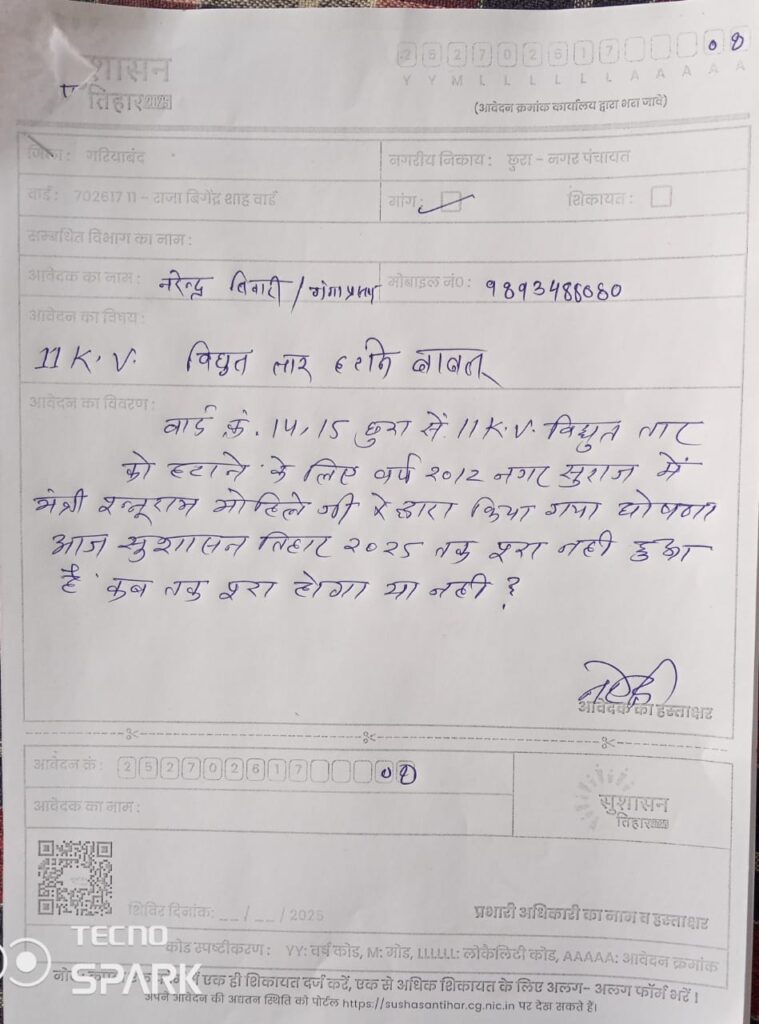 सुशासन
तिहार 2025
2 5 2 7 0 2 6 1 7 0 8
Y Y M L L L L L L A A A A A
(आवेदन क्रमांक कार्यालय द्वारा भरा जावे)
जिला : गरियाबंद
नगरीय निकाय : छुरा - नगर पंचायत
वार्ड : 70261711 - राजा बिगेंद्र शाह वार्ड
मांग :
शिकायत :
सम्बधित विभाग का नाम :
आवेदक का नाम : नरेन्द्र तिवारी /
मोबाइल नं० : 9893486080
आवेदन का विषय :
11 K. V. विद्युत तार हटाने बाबत्
आवेदन का विवरण :
वार्ड क्रं. 14,15 छुरा से 11 K.V. विद्युत तार
को हटाने के लिए वर्ष 2012 नगर सुराज में
मंत्री मोहिले जी के द्वारा किया गया घोषणा
आज सुशासन तिहार 2025 तक पूरा नही हुआ
है कब तक पूरा होगा या नही ?
आवेदक का हस्ताक्षर
आवेदन कं : 2 5 2 7 0 2 6 1 7 0 8
आवेदक का नाम :
सुशासन
तिहार 2025
शिविर दिनांक: __ / __ / 2025
प्रभारी अधिकारी का नाम व हस्ताक्षर
TECNO
SPARK
कोड स्पष्टीकरण : YY: वर्ष कोड, M: मोड, LLLLLL: लोकैलिटी कोड, AAAAA: आवेदन क्रमांक
में एक ही शिकायत दर्ज करें, एक से अधिक शिकायत के लिए अलग- अलग फॉर्म भरें।
अपने आवेदन की अद्यतन स्थिति को पोर्टल https://sushasantihar.cg.nic.in पर देख सकते हैं।